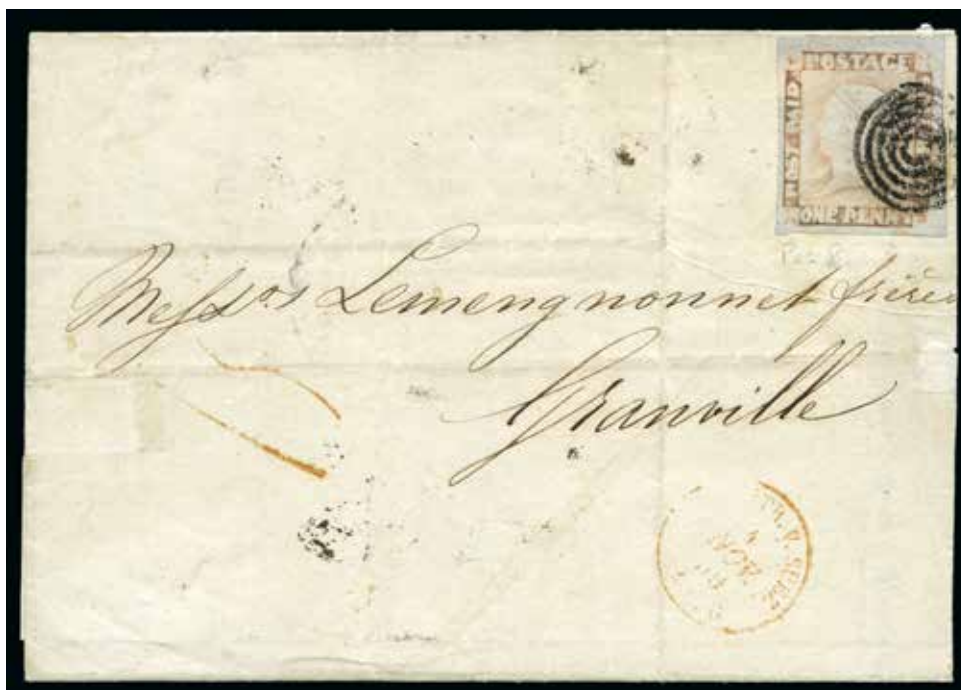 POSTAGE
POST PAID
ONE PENNY
Messrs Lemengnonnet frères
Granville
NOV
SUEZ